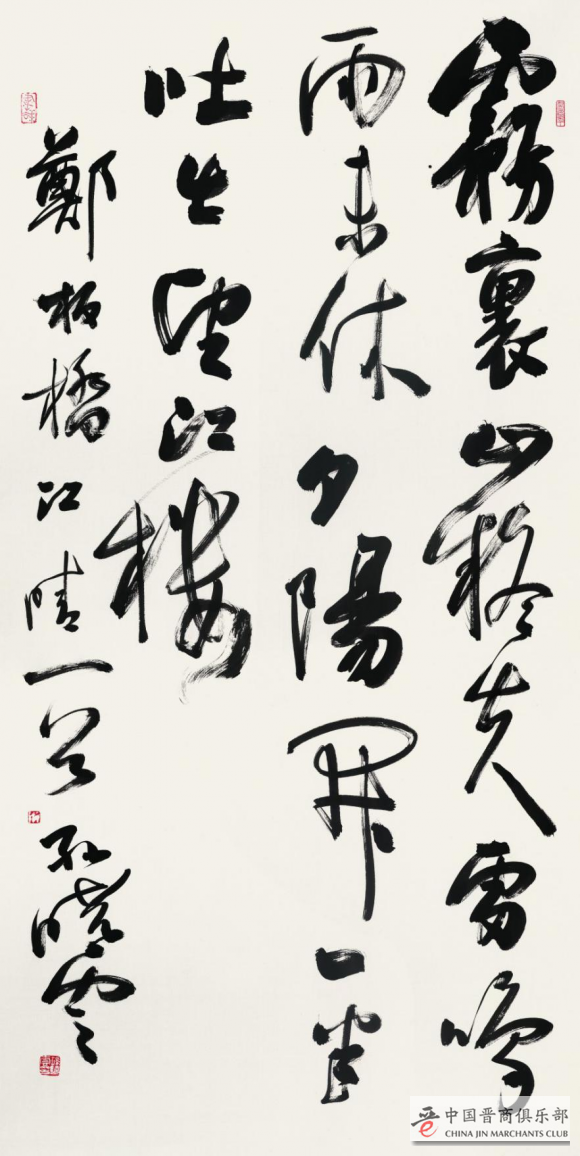 霧裏山疑失雷鳴
雨未休夕陽開一半
吐出望江樓
鄭板橋江晴一首 孔曉雲
中国晋商俱乐部
CHINA JIN MARCHANTS CLUB